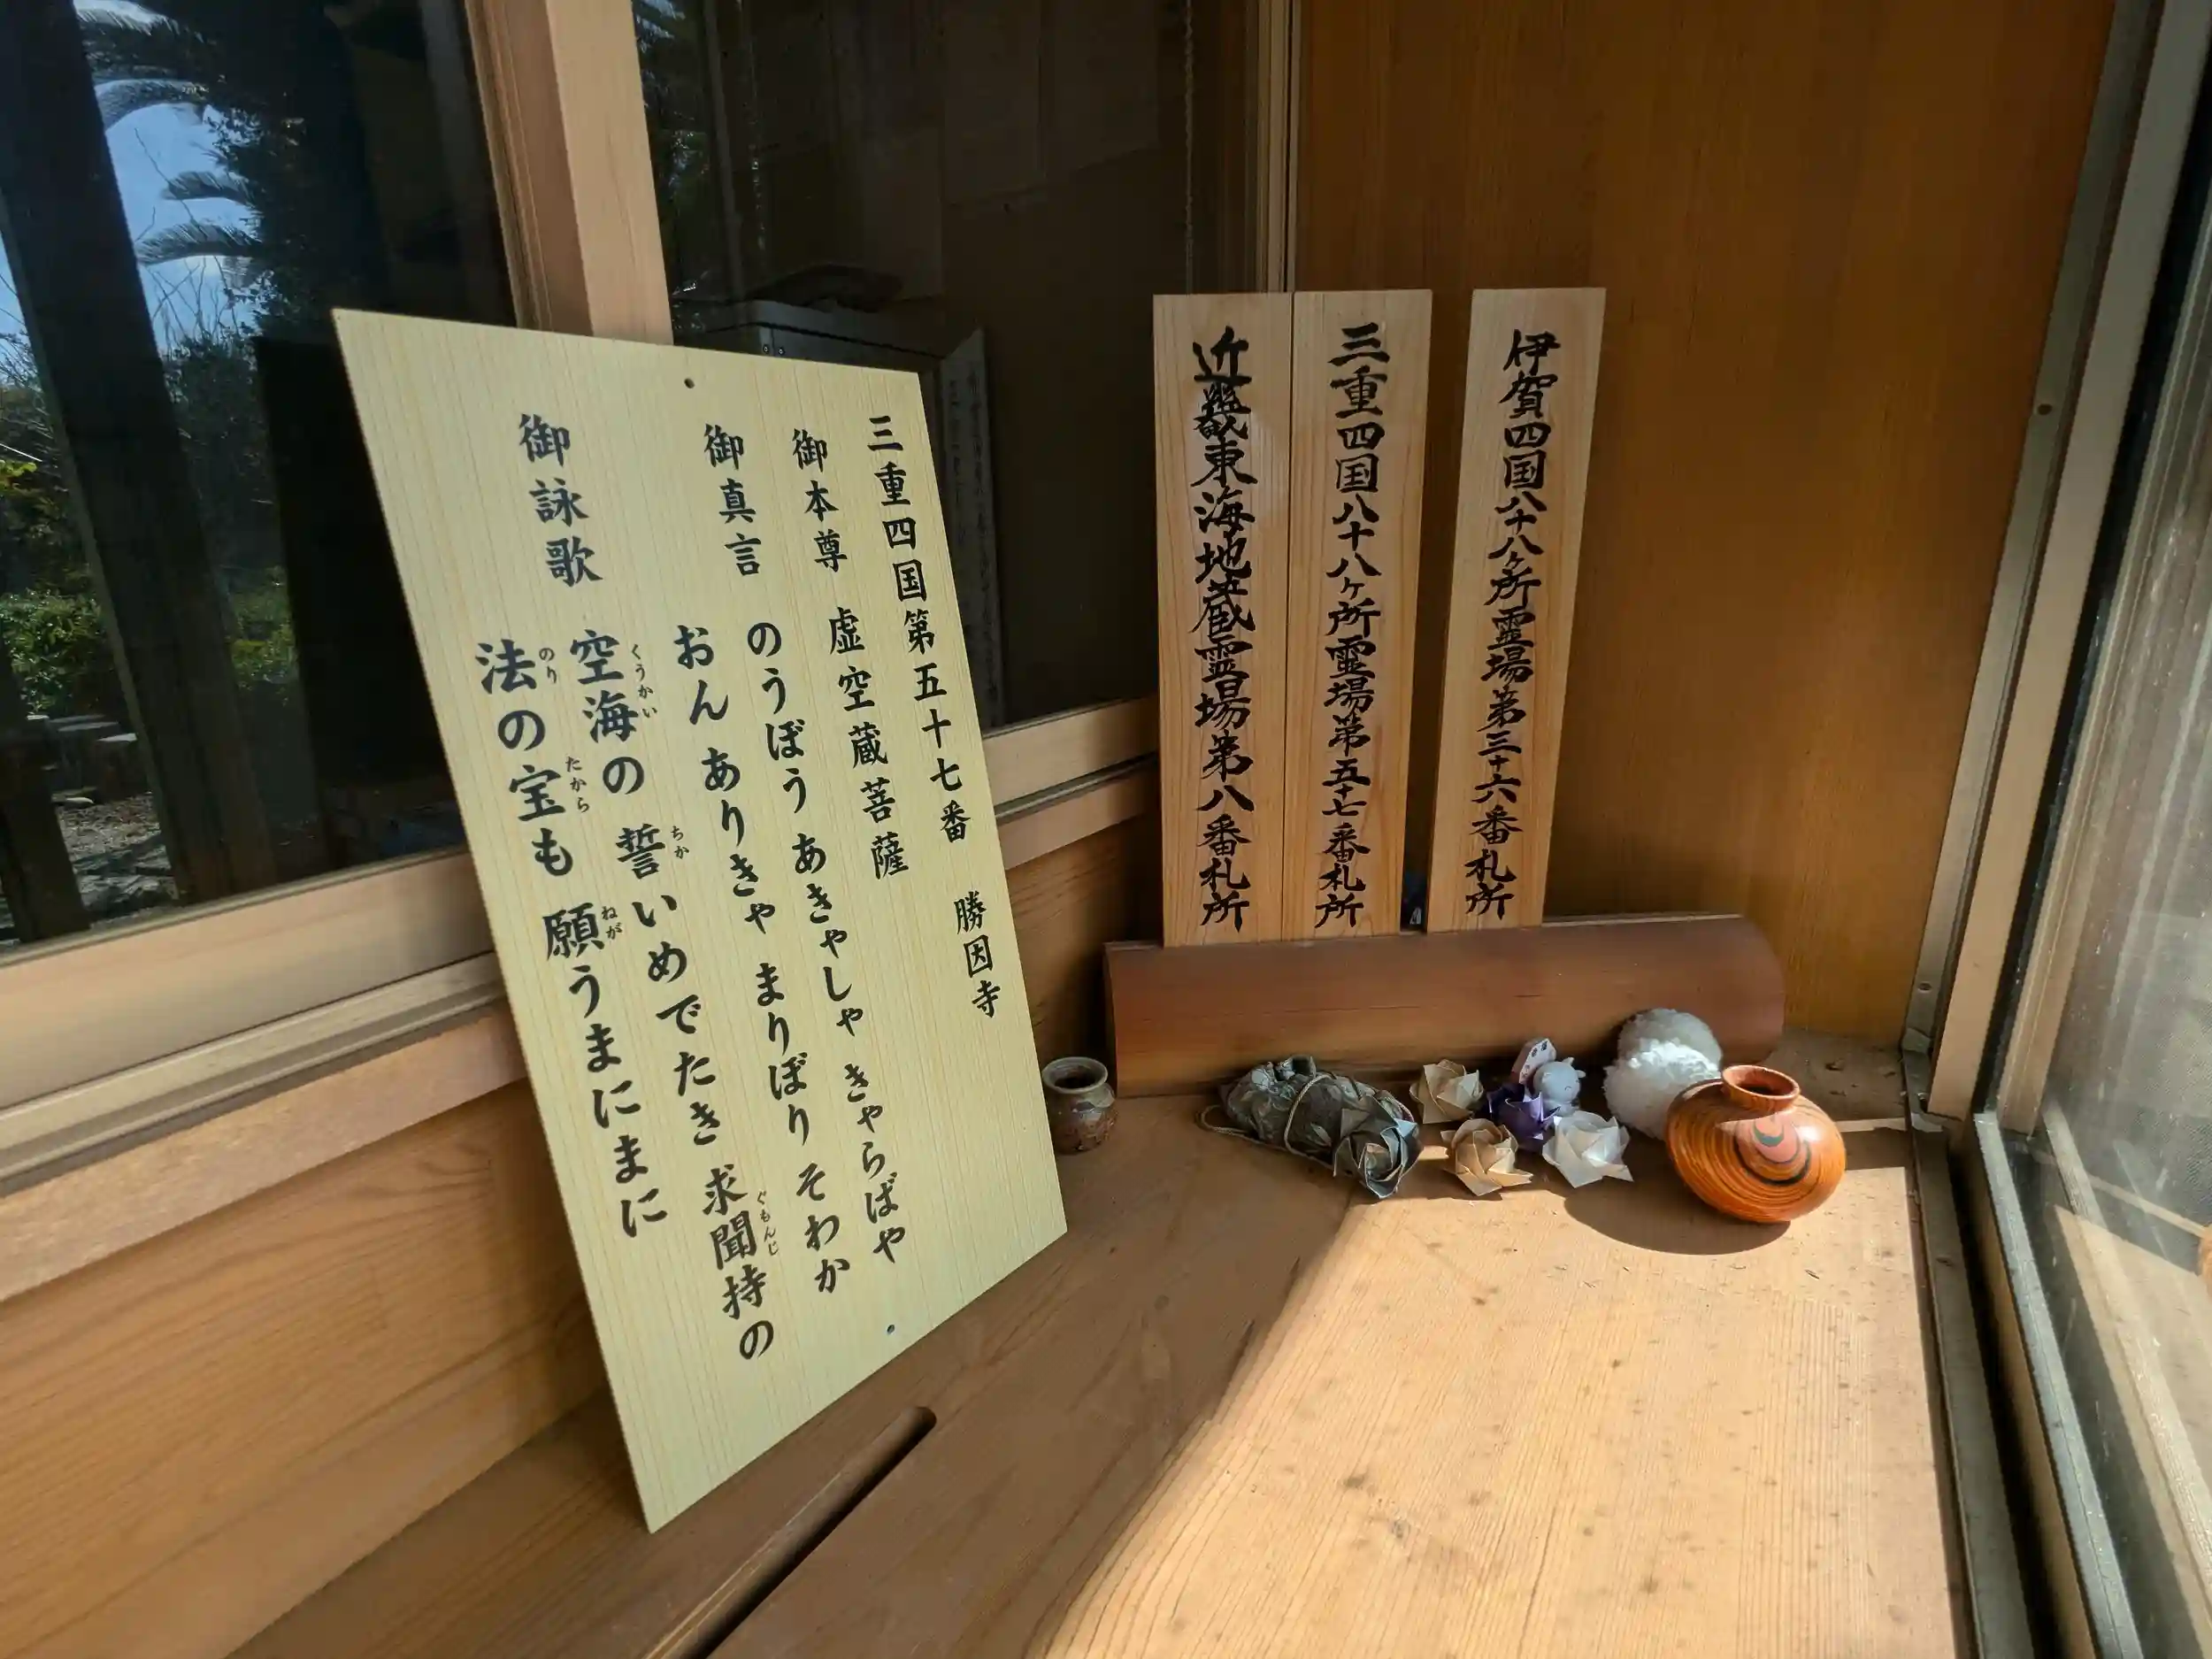 三重四国第五十七番　勝因寺
御本尊　虚空蔵菩薩
御真言　のうぼう あきゃしゃ きゃらばや
おん ありきゃ まりぼり そわか
御詠歌　空海の 誓いめでたき 求聞持の
くうかい ちか ぐもんじ
法の宝も 願うまにまに
のり たから ねが
近畿東海地蔵霊場第八番札所
三重四国八十八ヶ所霊場第五十七番札所
伊賀四国八十八ヶ所霊場第三十六番札所